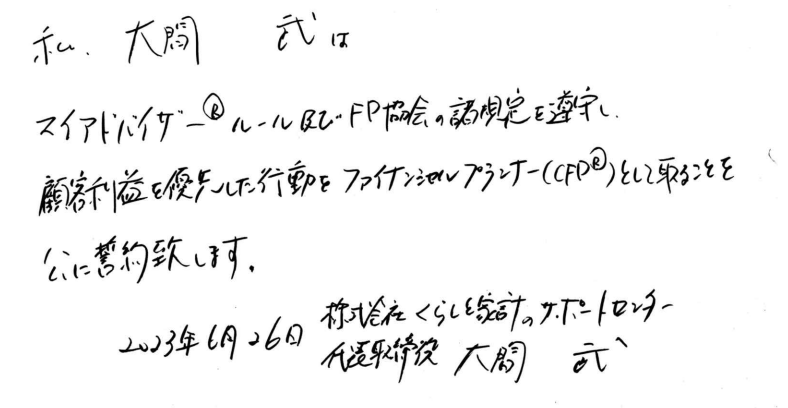 私、大間 武は
マイアドバイザー®ルール及びFP協会の諸規定を遵守し、
顧客利益を優先した行動をファイナンシャルプランナー(CFP®)として取ることを
公に誓約致します。
2023年6月26日 株式会社くらしと家計のサポートセンター
代表取締役 大間 武